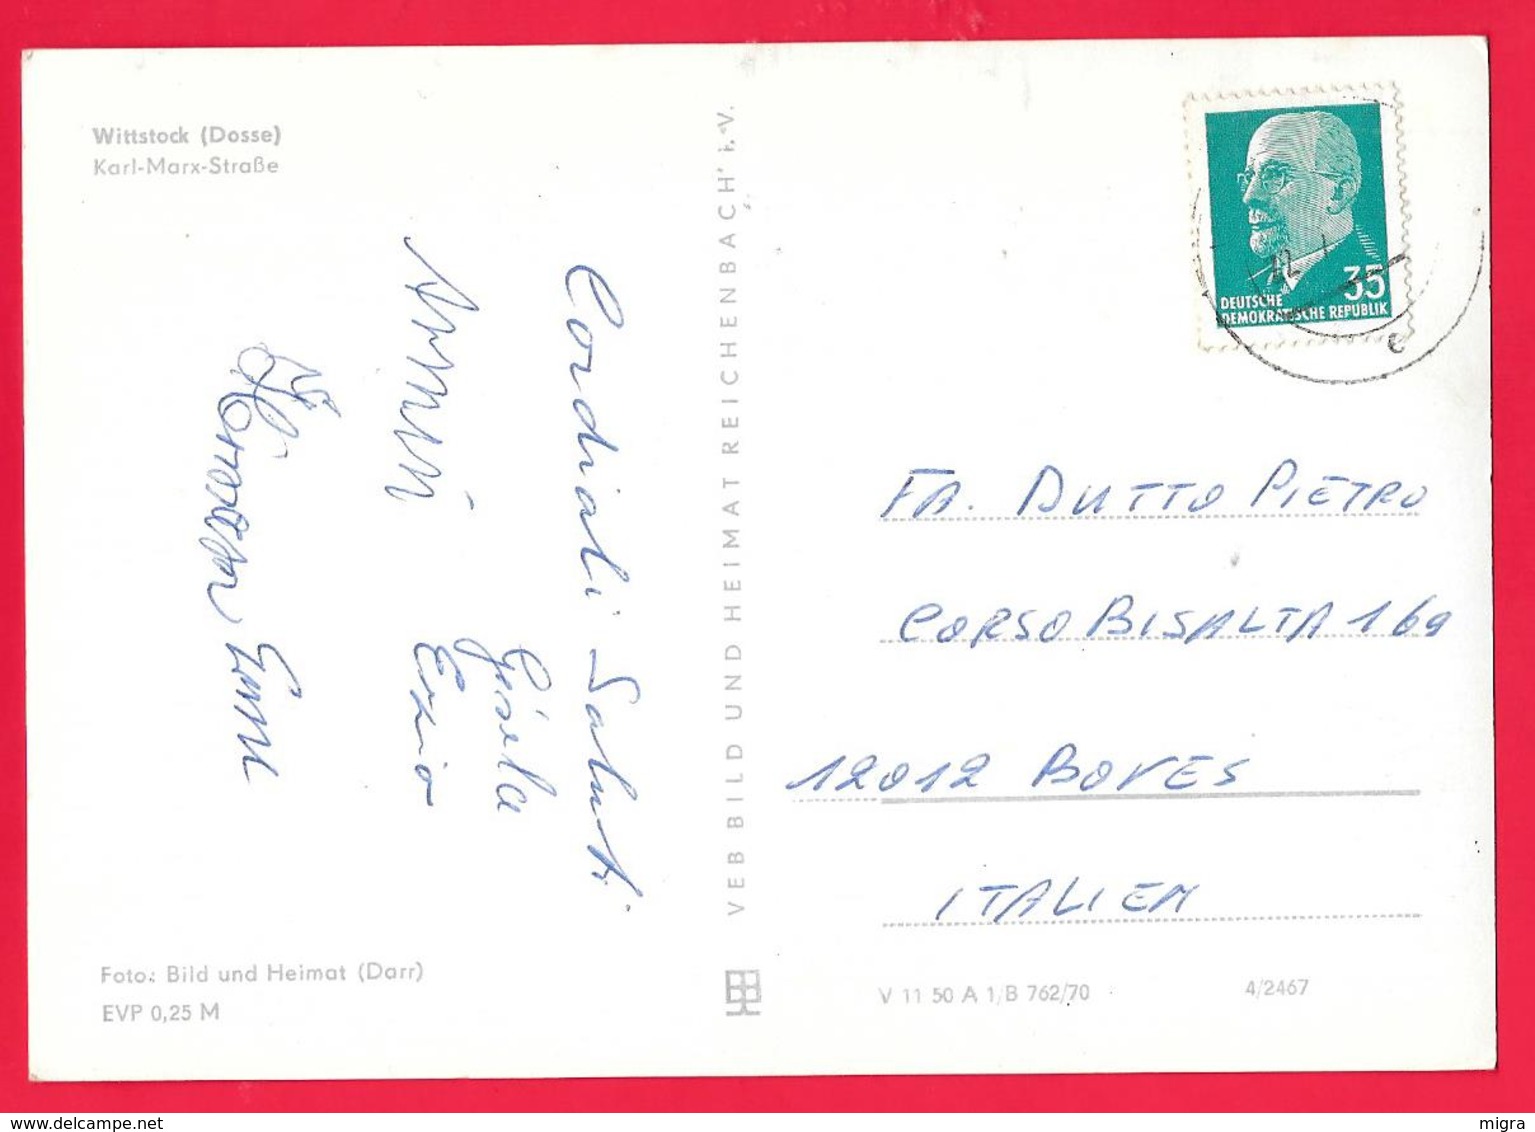 Wittstock (Dosse)
Karl-Marx-Straße
Cordiali Saluti
Gisela
Ezio
Foto: Bild und Heimat (Darr)
EVP 0,25 M
VEB BILD UND HEIMAT REICHENBACH i. V.
35
DEUTSCHE
DEMOKRATISCHE REPUBLIK
FA. DUTTO PIETRO
CORSO BISALTA 169
12012 BOVES
ITALIEN
V 11 50 A 1/B 762/70
4/2467
www.delcampe.net
migra